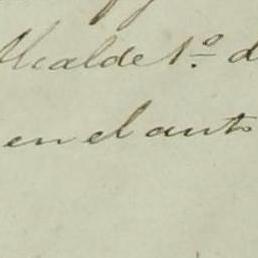 Alcalde 1.º d
en el auto